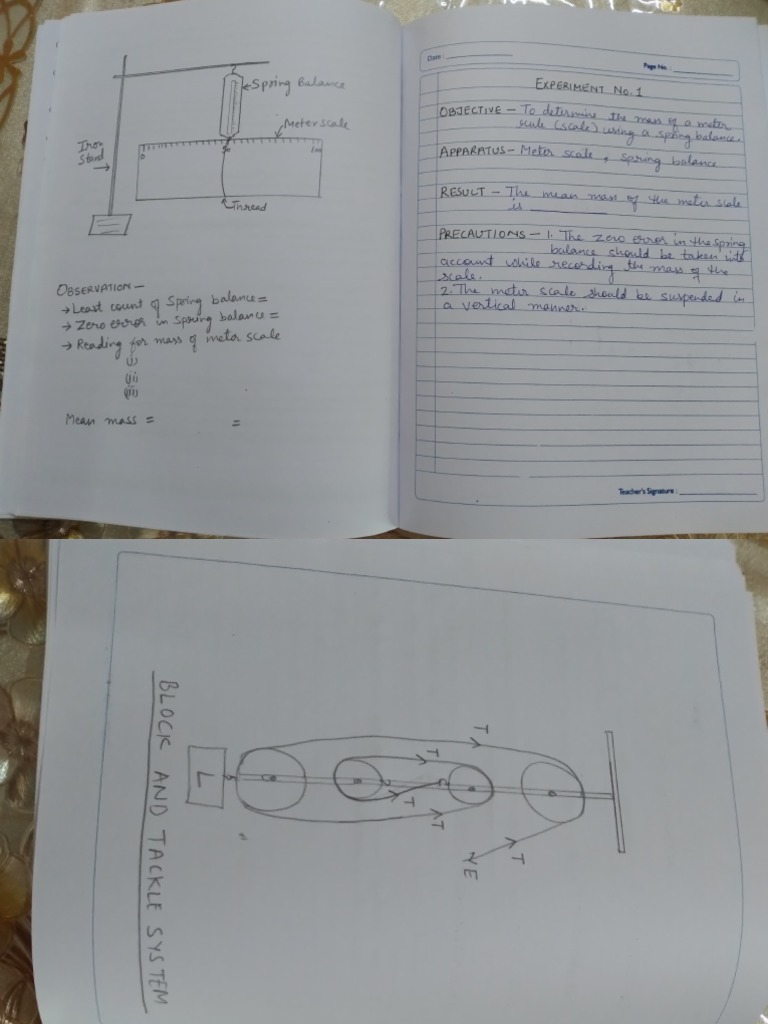 Spring Balance
Meter scale
Iron
Stand
0
50
100
Thread
OBSERVATION –
→ Least count of Spring balance =
→ Zero error in Spring balance =
→ Reading for mass of meter scale
(i)
(ii)
(iii)
Mean mass = =
Date :
Page No. :
EXPERIMENT NO. 1
OBJECTIVE – To determine the mass of a meter
scale (scale) using a spring balance.
APPARATUS – Meter scale, spring balance
RESULT – The mean mass of the meter scale
is
PRECAUTIONS – 1. The zero error in the spring
balance should be taken into
account while recording the mass of the
scale.
2. The meter scale should be suspended in
a vertical manner.
Teacher's Signature :
T
T
T
T
T
E
L
BLOCK AND TACKLE SYSTEM